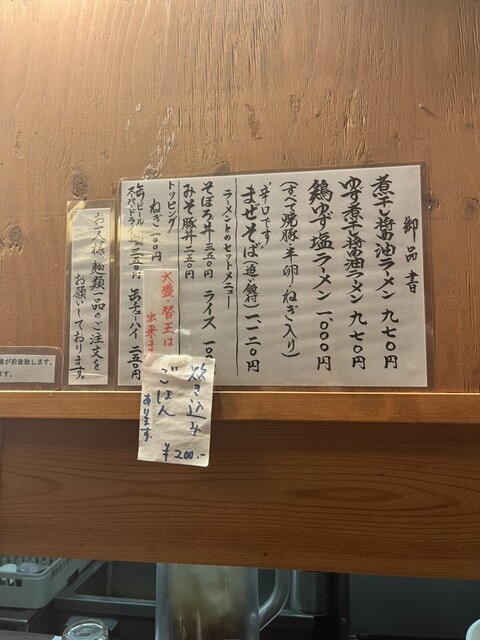 御品書
煮干し醤油ラーメン 九七〇円
ゆず煮干し醤油ラーメン 九七〇円
鶏ゆず塩ラーメン 一、〇〇〇円
(すべて焼豚・半卵・ねぎ入り)
辛口です
まぜそば(追い飯付) 一一二〇円
ラーメンとのセットメニュー
そぼろ丼 三五〇円 ライス 一〇
みそ豚丼 三五〇円
トッピング
ねぎ 一〇〇円
大盛・替玉は
出来ま
缶ビール
スーパードライ 三五〇円 缶チューハイ 二五〇円
炊き込み
ごはん
あります。
¥200.-
お一人様、麺類一品のご注文を
お願いしております。
が前後致します。
ます。